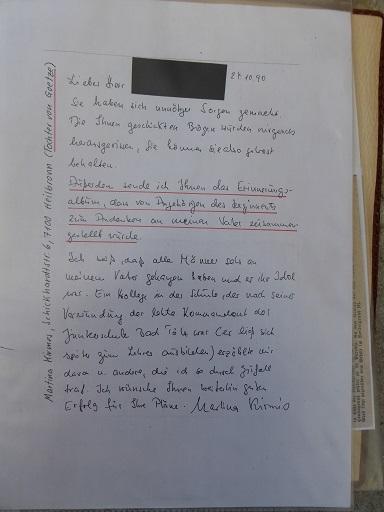 Martina Kirmes, Schickhardtstr. 6, 7100 Heilbronn (Tochter von Goetze)
Lieber Herr 24.10.90
Sie haben sich unnötige Sorgen gemacht.
Die Ihnen geschickten Bögen wurden nirgends
herausgerissen, Sie können sie also getrost
behalten.
Außerdem sende ich Ihnen das Erinnerungs-
album, das von Angehörigen des Regiments
zum Andenken an meinen Vater zusammen-
gestellt wurde.
Ich weiß, daß alle Männer sehr an
meinem Vater gehangen haben und er ihr Idol
war. Ein Kollege in der Schule, der nach seiner
Verwundung der letzte Kommandant der
Junkerschule Bad Tölz war (er ließ sich
später zum Lehrer ausbilden) erzählte mir
davon u. andere, die ich so durch Zufall
traf. Ich wünsche Ihnen weiterhin guten
Erfolg für Ihre Pläne. Martina Kirmes